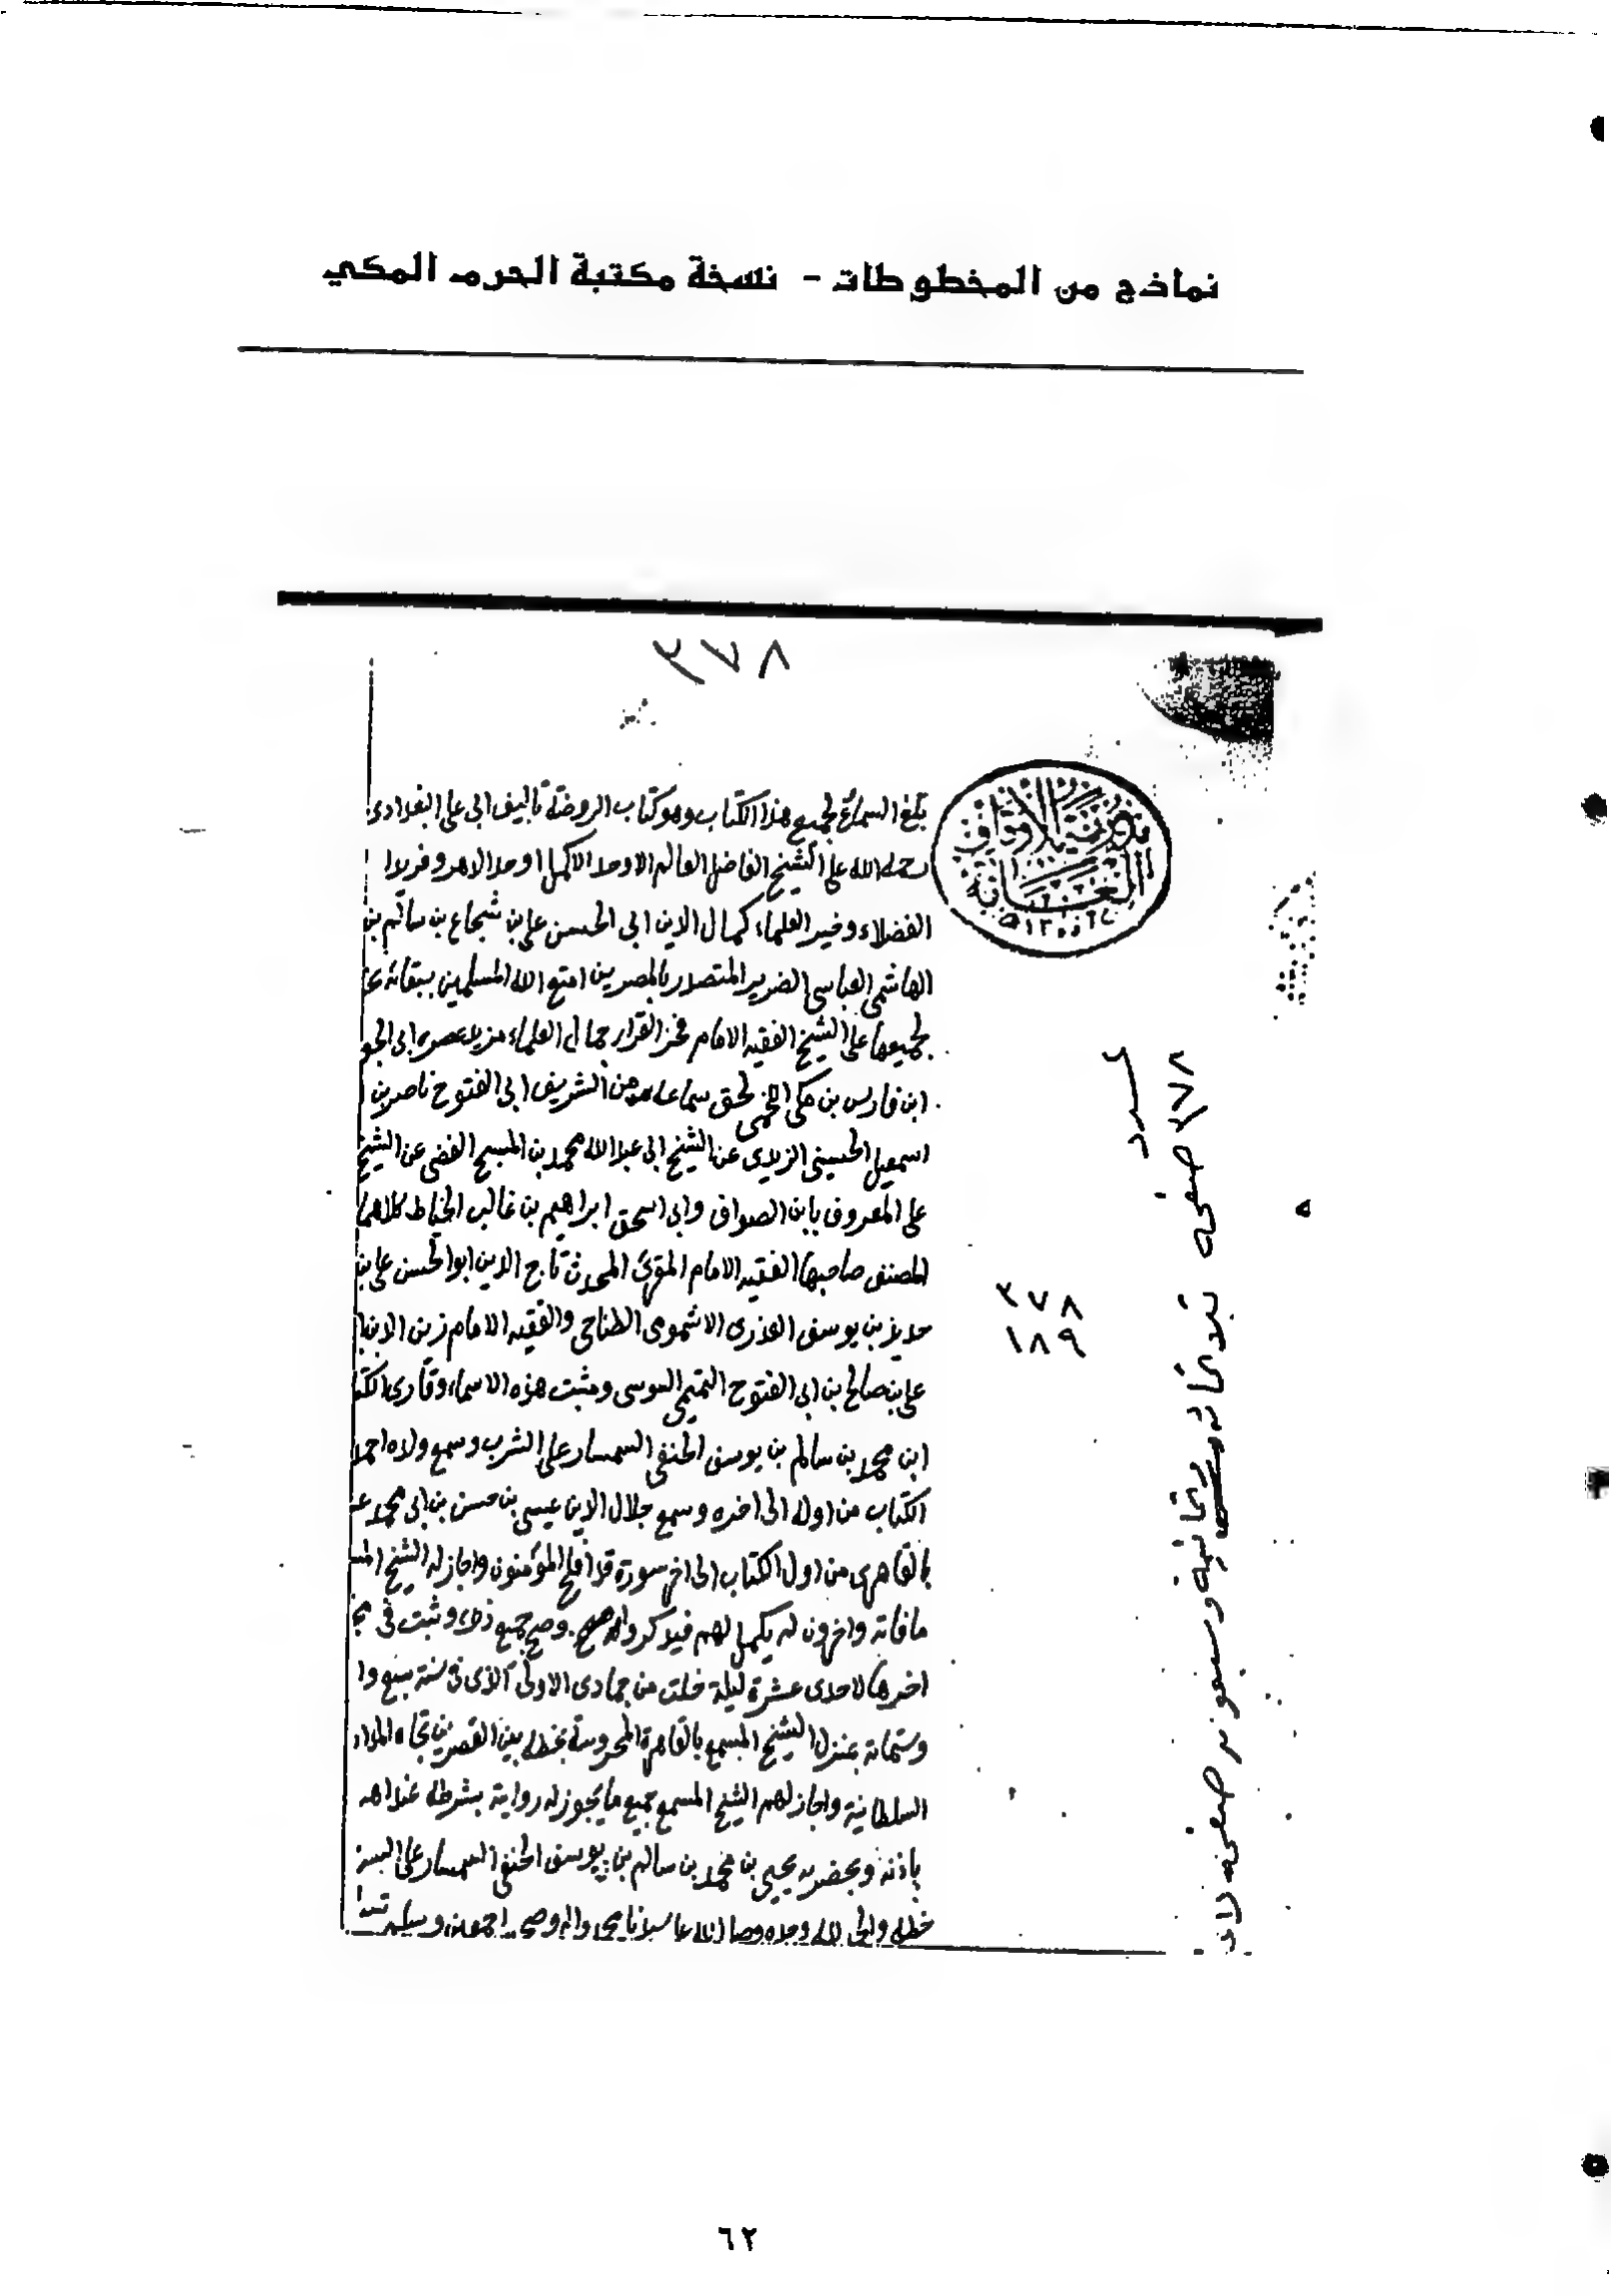 نماذج من المخطوطات - نسخة مكتبة الحرم المكي
٣٧٨
بلغ السماع لجميع هذا الكتاب وهو كتاب الروضة تاليف ابى على البغدادى
رحمه الله على الشيخ الفاضل العالم الاوحد الاكمل اوحد الدهر وفريد ا
الفضلاء وخير العلماء كمال الدين ابى الحسن على بن شجاع بن سالم بن
الهاشمى العباسى الضرير المتصدر بالمصرين امتع الله المسلمين ببقائه
لجميعها على الشيخ الفقيه الامام فخر القراء جمال العلماء فريد عصره ابى الجو
ابن فارس بن مكى اللخمى بحق سماعه من الشريف ابى الفتوح ناصر بن
اسمعيل الحسينى الزيدى عن الشيخ ابى عبد الله محمد بن المسبح الفضى عن الشيخ
على المعروف بابن الصواف وابى اسحق ابراهيم بن غالب الخياط كلاهما
المصنف صاحبها الفقيه الامام المقرئ المحدث تاج الدين ابو الحسن على بن
بن يوسف العذرى الاشمومى الطناحى والفقيه الامام زين الدين
على بن صالح بن ابى الفتوح التميمى السوسى ومثبت هذه الاسماء وقارى الكتا
ابن محمد بن سالم بن يوسف الحنفى السمسار على الشرب وسمع ولده احمد
الكتاب من اوله الى اخره وسمع جلال الدين عيسى بن حسن بن ابى محمد
القاهرى من اول الكتاب الى اخر سورة قد افلح المؤمنون واجاز له الشيخ المس
ما فاته واخرون لم يكمل لهم فيذكروا وصح جميع ذلك وثبت فى
اخرها لاحدى عشرة ليلة خلت من جمادى الاولى الذى فى سنة سبع وا
وستمائة بمنزل الشيخ المسمع بالقاهرة المحروسة بخط بين القصرين تجاه
السلطانية واجاز لهم الشيخ المسمع جميع ما يجوز له رواية بشرطه عند اهله
باذنه وبحضرته يحيى بن محمد بن سالم بن يوسف الحنفى السمسار على
خطه والحمد لله وحده وصلى الله على سيدنا محمد واله وصحبه اجمعين وسلم
عدد
٣٧٨ صفحه
ثلاثمائة وثمانية وسبعون صفحه لا
٣٧٨
١٨٩
٦٢